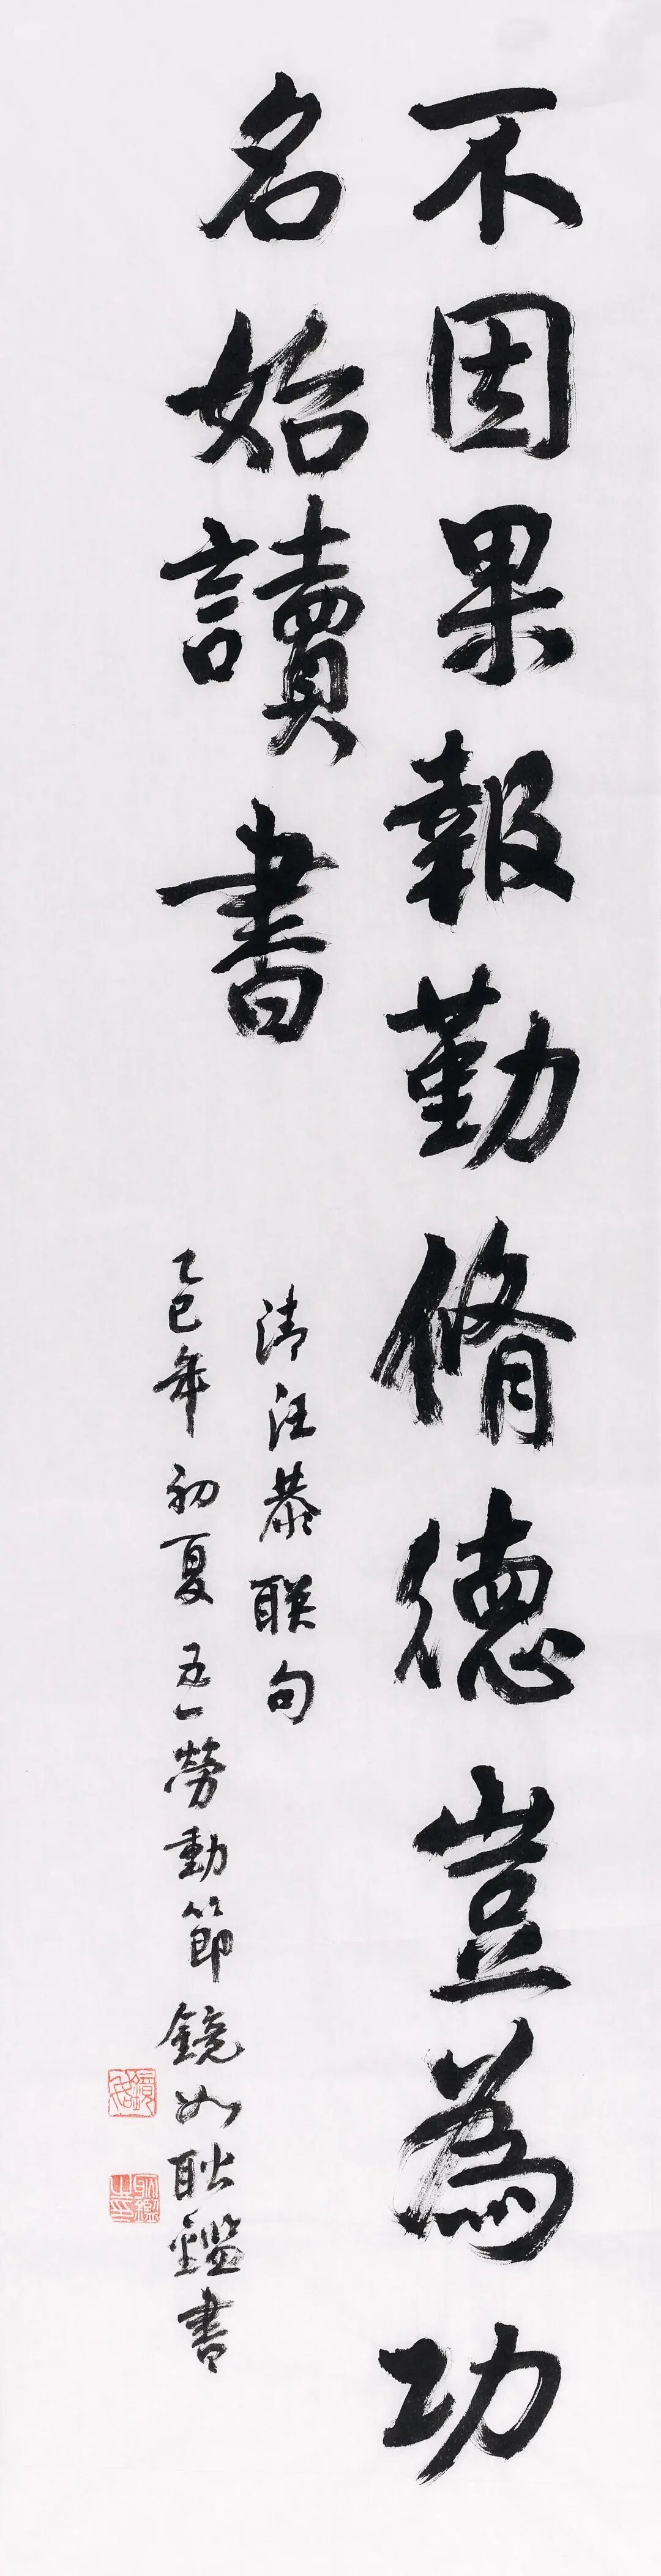 不因果報勤脩德豈為功
名始讀書
清汪恭联句
乙巳年初夏五一勞動節鏡如耿鑑書
鏡如